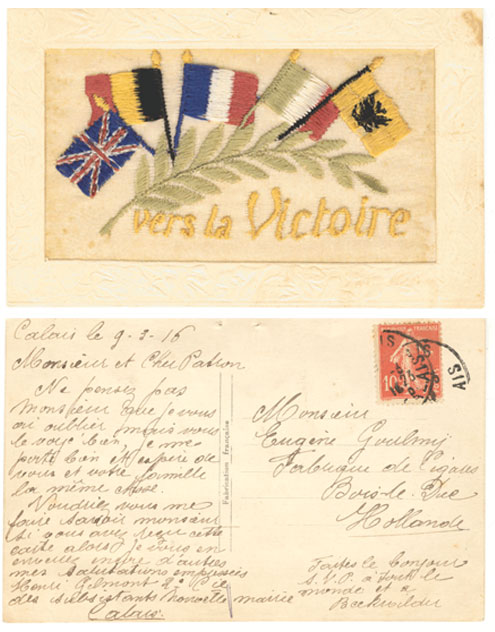 vers la Victoire
Calais le 9-3-16
Monsieur et Cher Patron
Ne pensez pas
Monsieur que je vous
ai oublier mais vous
le voyé bien, je me
porte bien et espère de
vous et votre famille
la même chose.
Voudriez vous me
faire savoir monsieur
si vous avez reçu cette
carte alors je vous en
enverai d'autres
mes salutations empressées
Henri
des subsistants nouvelle mairie
Calais
Fabrication française
REPUBLIQUE FRANÇAISE
10
Monsieur
Eugène Goulmy
Fabrique de Cigares
Bois-le-Duc
Hollande
Faites le bonjour
S.V.P. à tout le
monde et a